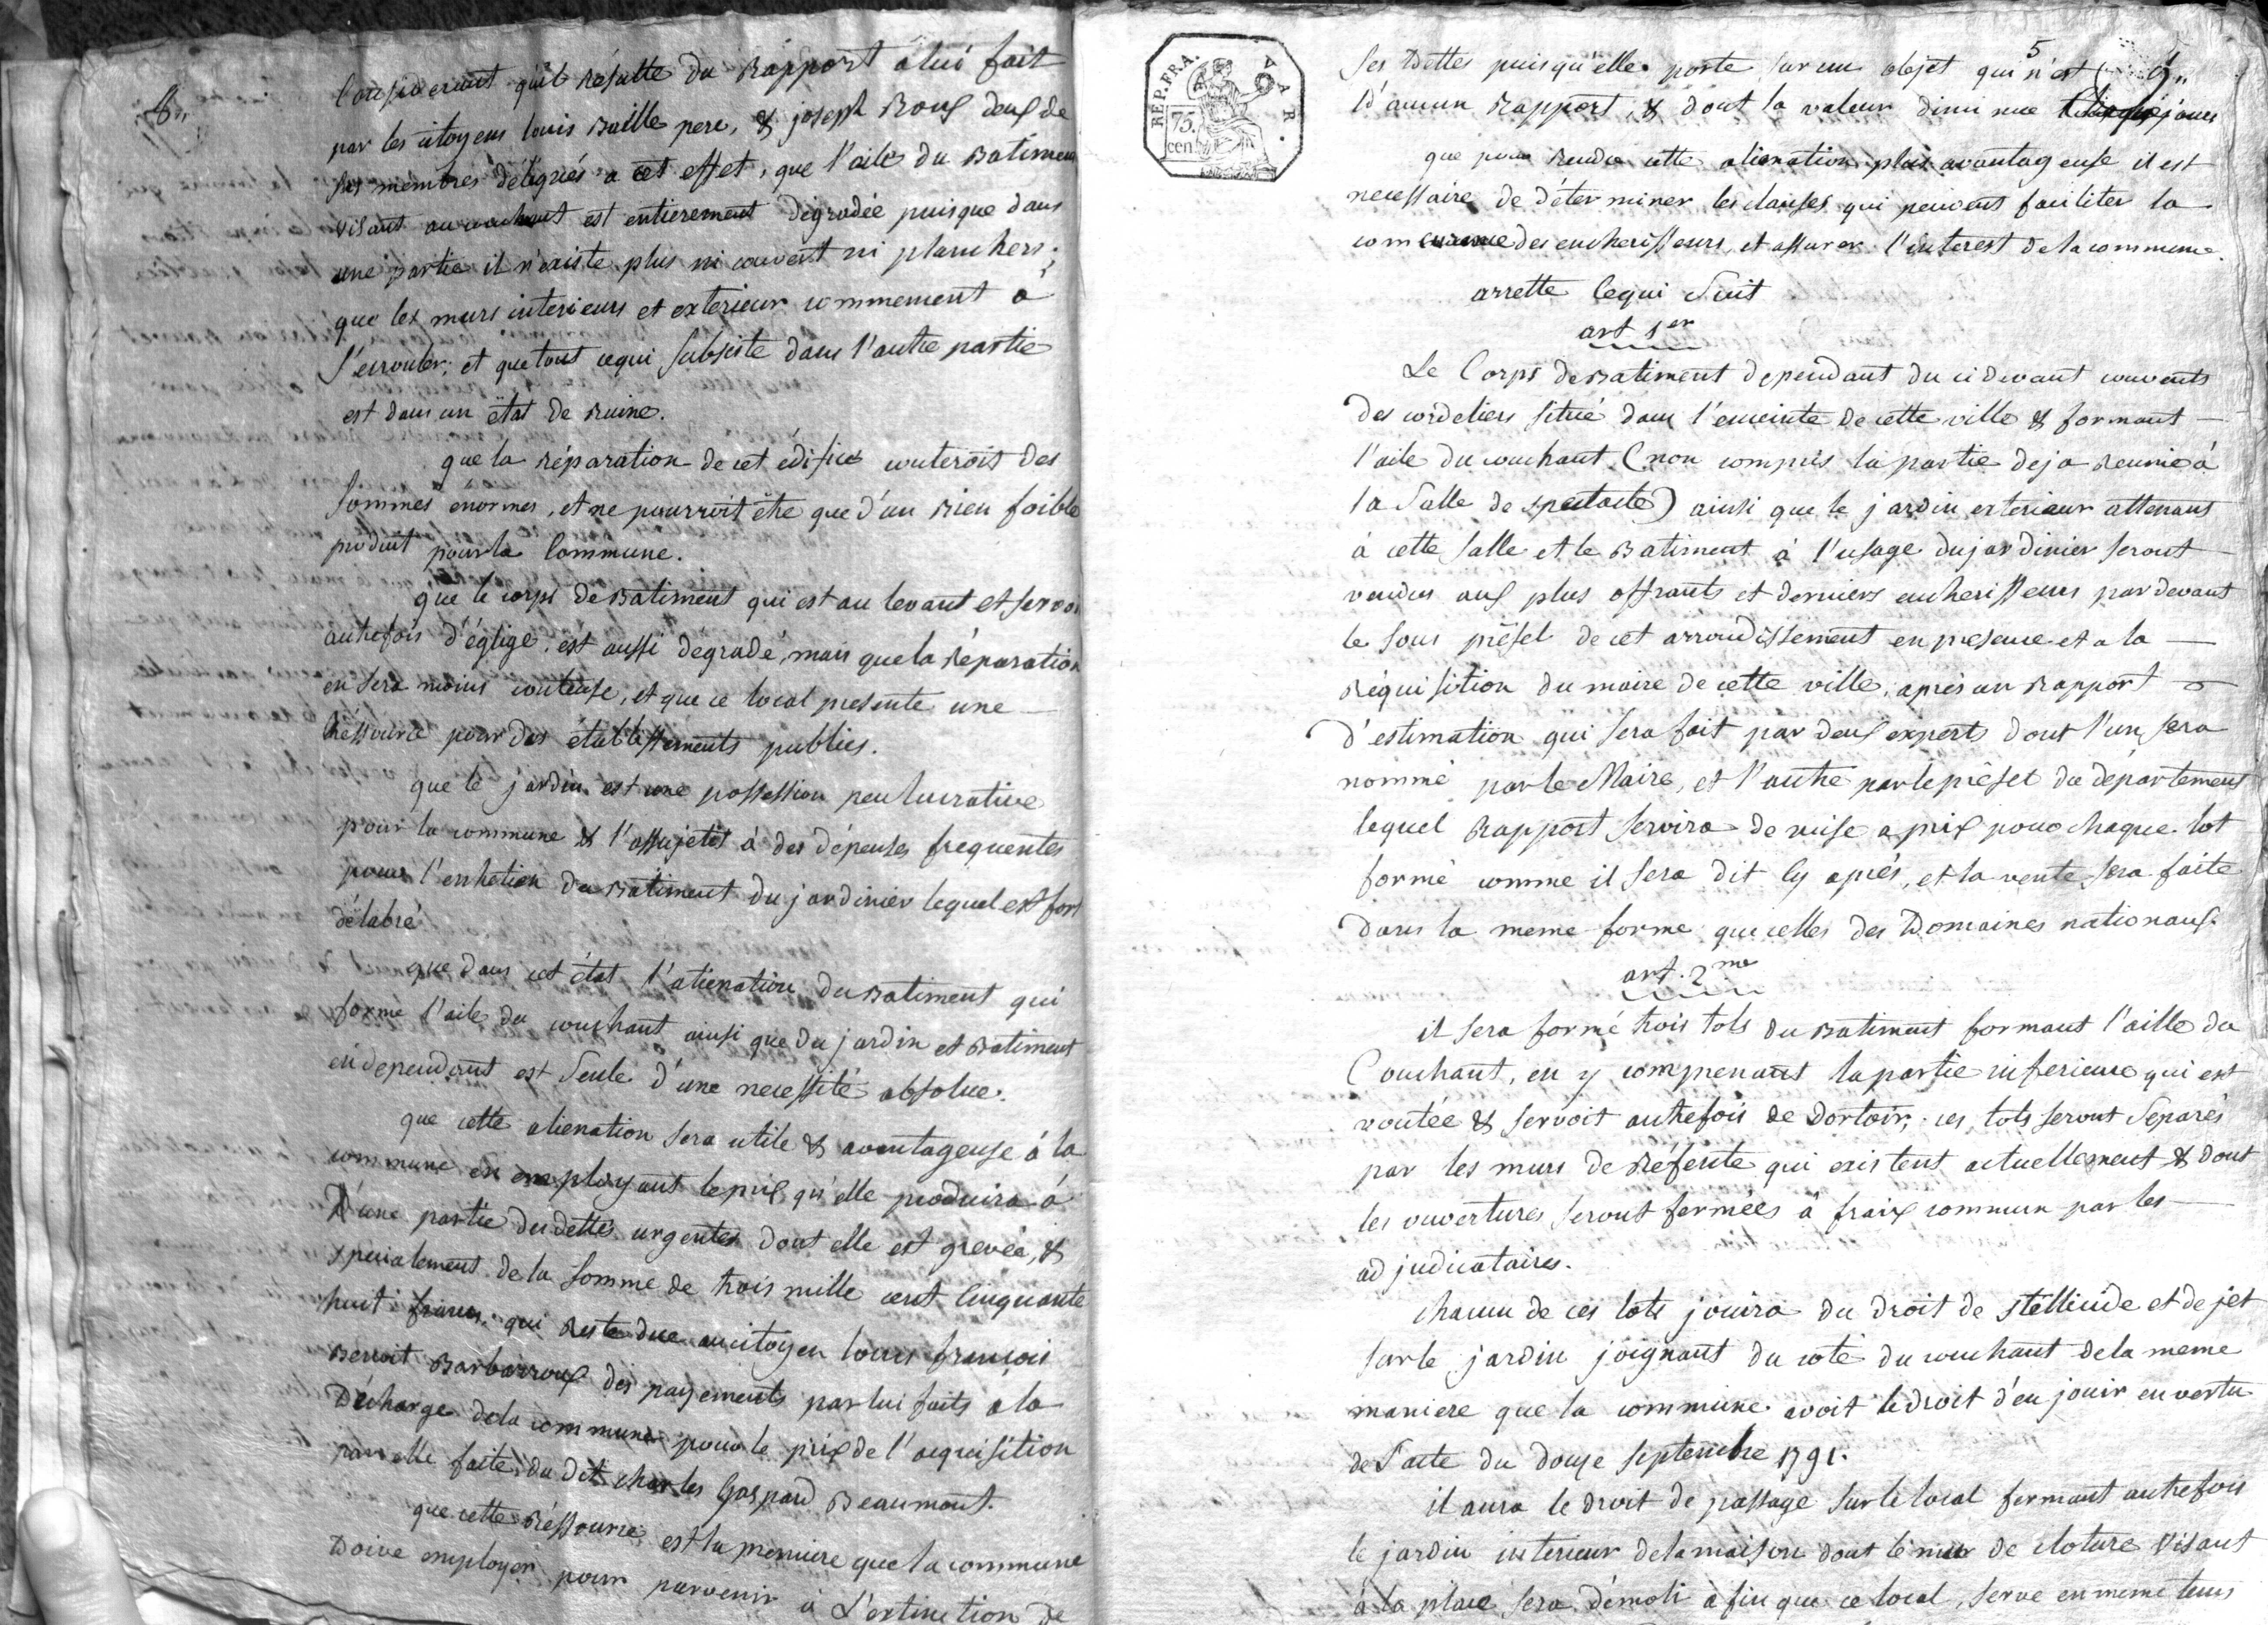 8,,
Considerant qu'il résulte du Rapport a lui fait
par les citoyens louis Baille pere, & joseph Roux deux de
ses membres délégués a cet effet, que l'aile du Batiment
visant au couchant est entierement dégradée puisque dans
une partie il n'existe plus ni couvert ni planchers;
que les murs interieurs et exterieur commencent à
s'ecrouler; et que tout cequi subsiste dans l'autre partie
est dans un état de Ruine.
que la réparation de cet édifice couteroit des
sommes énormes, et ne pourroit étre que d'un bien foible
produit pour la Commune.
que le corps de Batiment qui est au levant et servoi
autrefois d'églige, est aussi dégradé, mais que la réparation
en sera moins couteuse, et que ce local presente une
Réssource pour des établissements publics.
que le jardin est une possession peu lucrative
pour la commune & l'assujetit à des dépenses frequentes
pour l'entretien du Batiment du jardinier lequel est fort
délabré
que dans cet état l'alienation du Batiment qui
forme l'aile du couchant ainsi que du jardin et Batiment
en dependant est seule d'une necessité absolue.
que cette alienation sera utile & avantageuse à la
commune en employant le prix qu'elle produira à
D'une partie des dettes urgentes dont elle est grevée, &
specialement de la somme de trois mille cent Cinquante
huit francs, qui reste due au citoyen louis françois
Benoit Barbarroux des payements par lui faits à la
Décharge de la commune pour le prix de l'acquisition
par elle faite du dit charles Gaspard Beaumont.
que cette Réssource est la premiere que la commune
Doive employer pour parvenir à L'extinction de
REP. FRA. VAR.
75.
cen.
5
9,,
ses Dettes puisqu'elle porte sur un objet qui n'est
D'aucun Rapport, & dont la valeur diminue jours
que pour Rendre cette alienation plus avantageuse il est
necessaire de déterminer les clauses qui peuvent faciliter la
des encherisseurs, et assurer l'interest de la commune.
arrette Cequi Suit
art 1er
Le Corps de Batiment dependant du cidevant couvents
des cordeliers situé dans l'enceinte de cette ville & formant
l'aile du couchant (non compris la partie deja reunie à
la Salle de spectacle) ainsi que le jardin exterieur attenant
à cette salle et le Batiment à l'usage du jardinier seront
vendus aux plus offrants et derniers encherisseurs pardevant
le sous préfet de cet arrondissement en presence et a la
Réquisition du maire de cette ville, aprés un Rapport
D'estimation qui sera fait par deux experts dont l'un sera
nommé par le Maire, et l'autre par le préfet du departement
lequel Rapport servira de mise a prix pour chaque lot
formé comme il sera dit Cy aprés, et la vente sera faite
Dans la meme forme que celles des Domaines nationaux.
art. 2me
il sera formé trois lots du Batiment formant l'aille du
Couchant, en y comprenant la partie inferieure qui est
voutée & servoit autrefois de Dortoir; ces lots seront séparés
par les murs de Réfente qui existent actuellement & dont
les ouvertures seront fermées à fraix commun par les
adjudicataires.
chacun de ces lots jouira du droit de stéllicide et de jet
sur le jardin joignant du coté du couchant de la meme
maniere que la commune avoit le droit d'en jouir en vertu
de l'acte du douze septembre 1791.
il aura le droit de passage sur le local formant autrefois
le jardin interieur de la maison dont le mur de cloture visant
à la place sera démoli afin que ce local, serve en meme tems